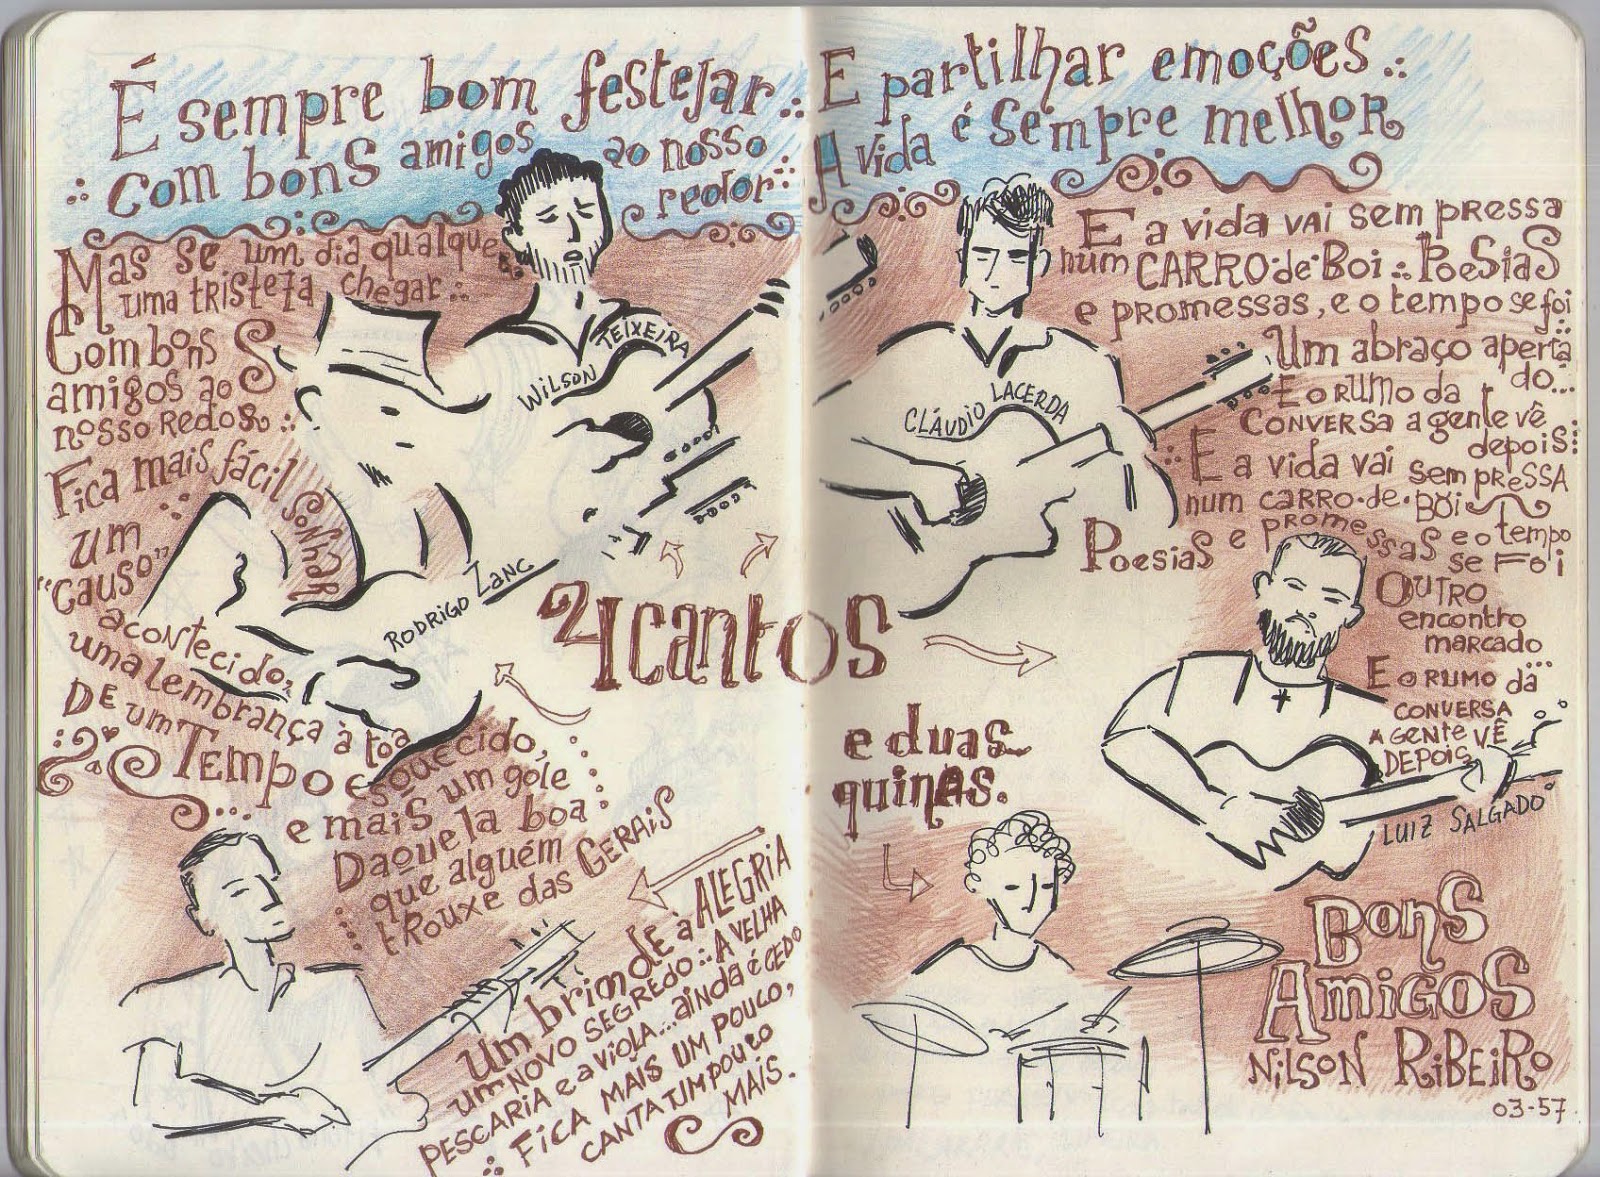 É sempre bom festejar
com bons amigos ao nosso
redor
Mas se um dia qualquer
uma tristeza chegar
Com bons
amigos ao
nosso redor
Fica mais fácil sonhar
um
"causo"
acontecido,
uma lembrança à toa
De um Tempo esquecido,
e mais um gole
Daquela boa
que alguém
trouxe das Gerais
um brinde à ALEGRIA
um novo segredo A velha
pescaria e a viola... ainda é cedo
Fica mais um pouco,
canta um pouco
mais.
Wilson Teixeira
Rodrigo Zanc
4 cantos
e duas
quinas.
E partilhar emoções
A vida é sempre melhor
E a vida vai sem pressa
num CARRO-de-Boi Poesias
e promessas, e o tempo se foi
Um abraço aperta
do...
E o rumo da
conversa a gente vê
depois
E a vida vai sem pressa
num carro-de-boi
Poesias e promessas e o tempo
se foi
Outro
encontro
marcado
E o rumo da...
conversa
a gente vê
depois
Cláudio Lacerda
Luiz Salgado
Bons
Amigos
Nilson Ribeiro
03-57